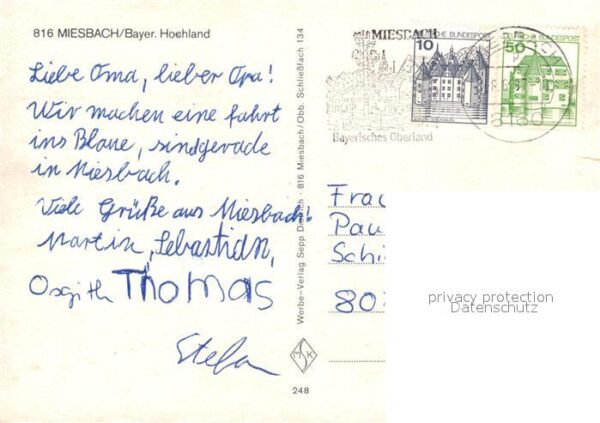 816 MIESBACH/Bayer. Hochland
Liebe Oma, lieber Opa!
Wir machen eine fahrt
ins Blaue, sind gerade
in Miesbach.
Viele Grüße aus Miesbach!
Martin, Sebastian,
Osgith Thomas
Stefan
Werbe-Verlag Sepp · 816 Miesbach/Obb. Schließfach 134
248
MIESBACH
Bayerisches Oberland
10
DEUTSCHE BUNDESPOST
50
BUNDESPOST
8160
Frau
Pau
Schi
80
privacy protection
Datenschutz